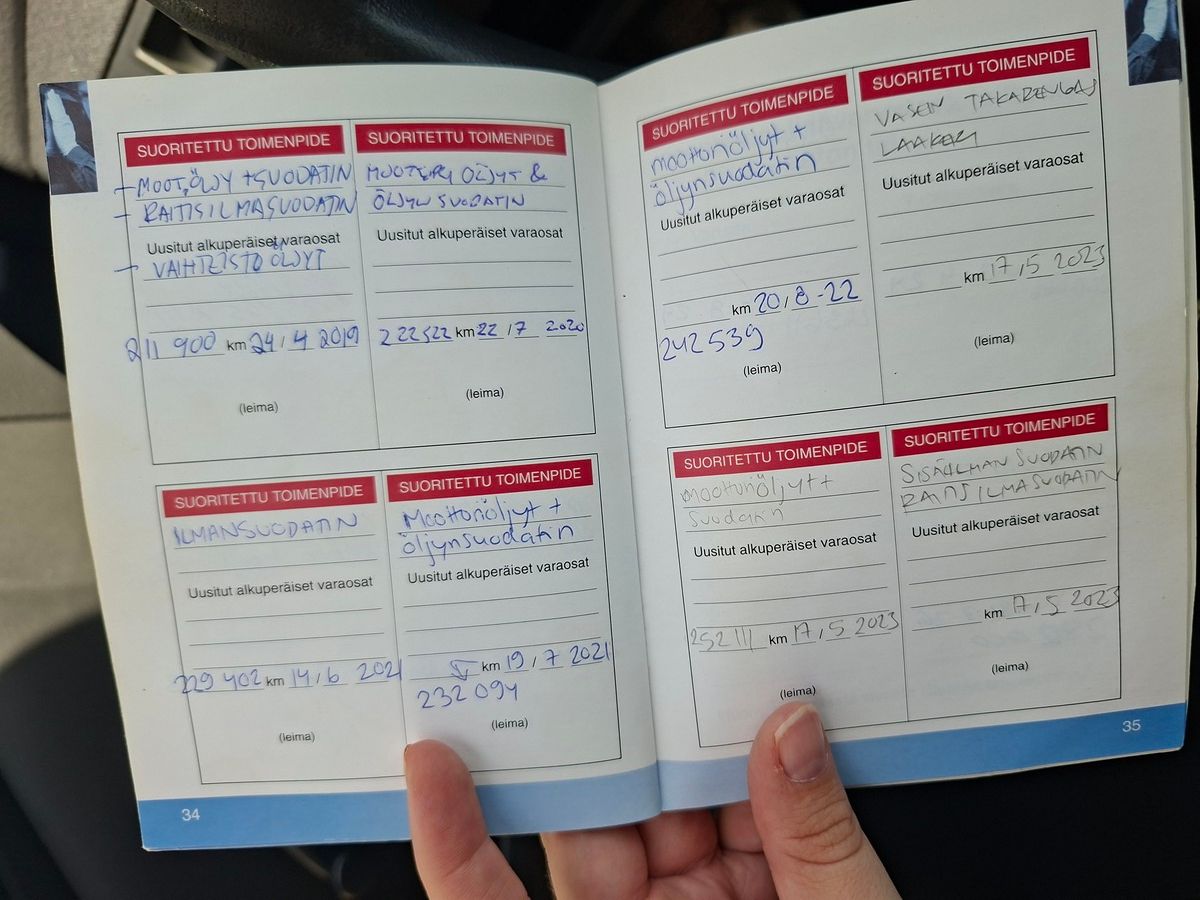 SUORITETTU TOIMENPIDE
- MOOT.ÖLJY + SUODATIN
- RAITISILMASUODATIN
Uusitut alkuperäiset varaosat
- VAIHTEISTOÖLJYT
211 900 km 24/4 2019
(leima)
SUORITETTU TOIMENPIDE
MOOTORI ÖLJYT &
ÖLJYN SUODATIN
Uusitut alkuperäiset varaosat
222522 km 22/7 2020
(leima)
SUORITETTU TOIMENPIDE
ILMANSUODATIN
Uusitut alkuperäiset varaosat
229 402 km 14/6 2021
(leima)
SUORITETTU TOIMENPIDE
Moottoriöljyt +
öljynsuodatin
Uusitut alkuperäiset varaosat
km 19/7 2021
232 094
(leima)
34
SUORITETTU TOIMENPIDE
moottoriöljyt +
öljynsuodatin
Uusitut alkuperäiset varaosat
km 20/8-22
242 539
(leima)
SUORITETTU TOIMENPIDE
VASEN TAKARENGAS
LAAKERI
Uusitut alkuperäiset varaosat
km 17/5 2023
(leima)
SUORITETTU TOIMENPIDE
moottoriöljyt +
suodatin
Uusitut alkuperäiset varaosat
252 111 km 17/5 2023
(leima)
SUORITETTU TOIMENPIDE
SISÄILMAN SUODATIN
RAITISILMASUODATIN
Uusitut alkuperäiset varaosat
km 17/5 2023
(leima)
35